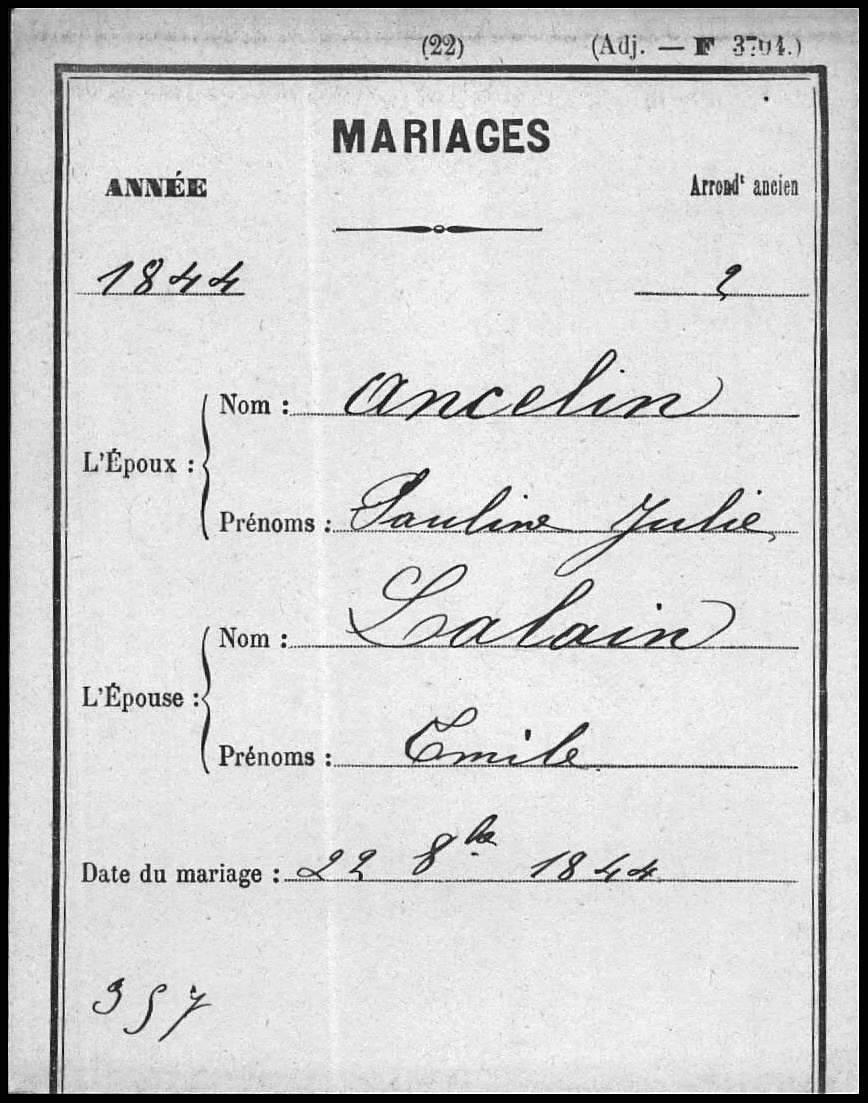 (22) (Adj. — F 3704.)
MARIAGES
ANNÉE Arrondt ancien
1844 2
L'Époux :
Nom : Ancelin
Prénoms : Pauline Julie
L'Épouse :
Nom : Lalain
Prénoms : Emile
Date du mariage : 22 8bre 1844
357